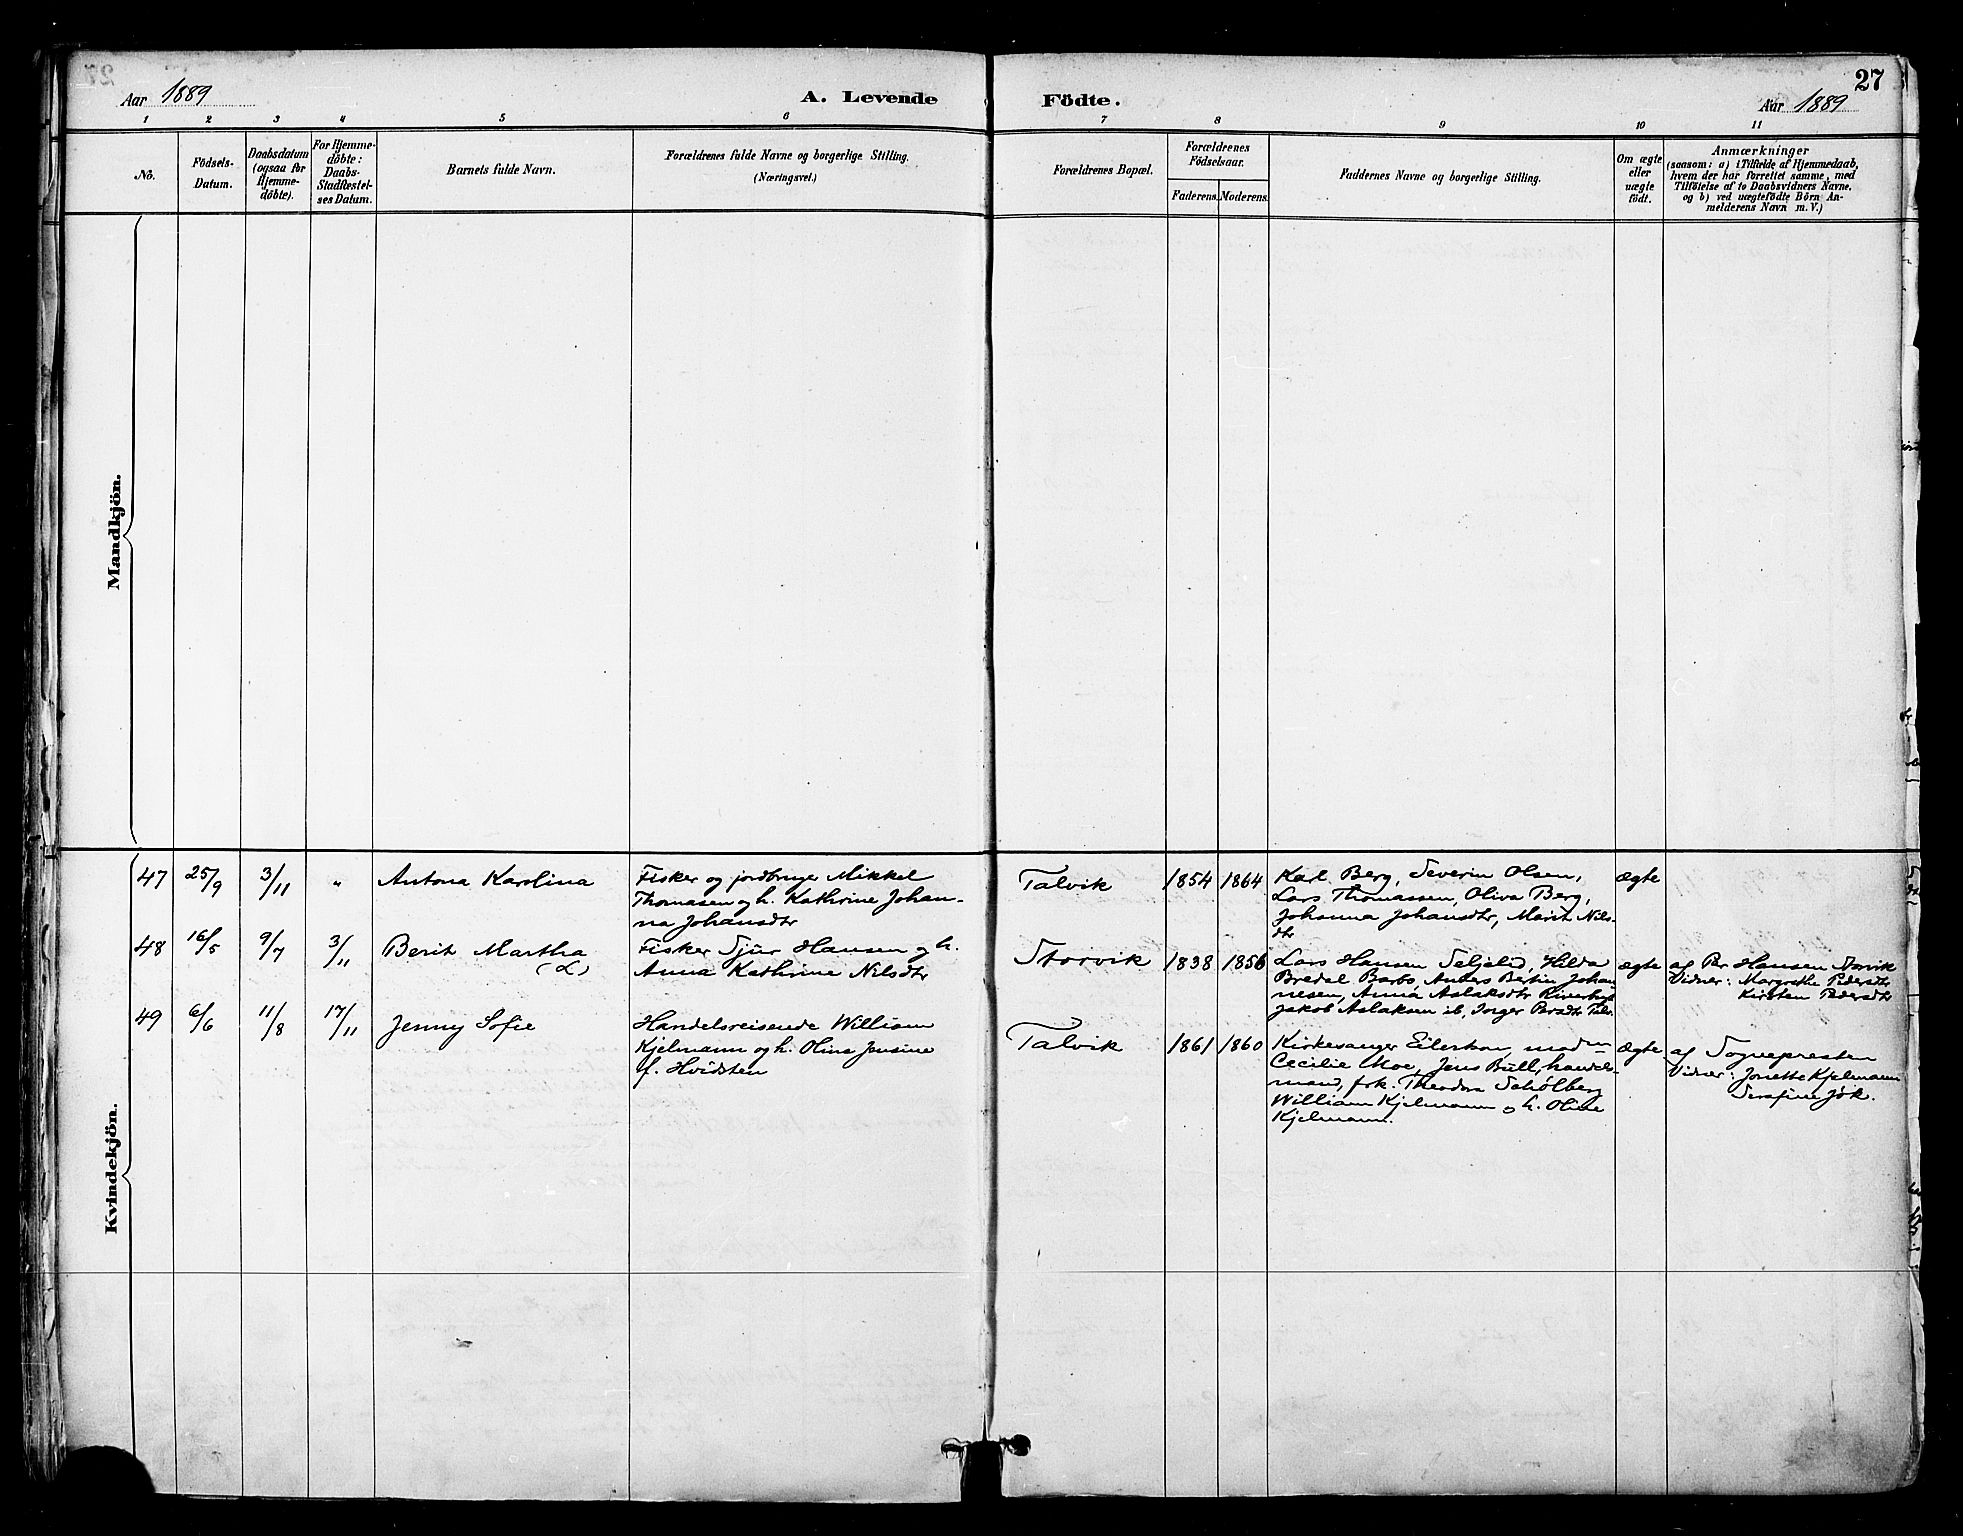 27
Aar 1889
A. Levende Födte.
Aar 1889
1 2 3 4 5 6 7 8 9 10 11
No.
Födsels-
Datum.
Daabsdatum
(ogsaa for
Hjemme-
döbte).
For Hjemme-
döbte:
Daabs-
Stadfæstel-
ses Datum.
Barnets fulde Navn.
Forældrenes fulde Navne og borgerlige Stilling.
(Næringsvei.)
Forældrenes Bopæl.
Forældrenes
Födselsaar.
Faderens.
Moderens.
Faddernes Navne og borgerlige Stilling.
Om ægte
eller
uægte
födt.
Anmærkninger
(saasom: a) i Tilfælde af Hjemmedaab,
hvem der har forrettet samme, med
Tilföielse af to Daabsvidners Navne,
og b) ved uægtefödte Börn An-
melderens Navn m. V.)
Mandkjön.
Kvindekjön.
47
25/9
3/11
"
Antona Karolina
Fisker og jordbruger Mikkel
Thomasen og h. Kathrine Johan-
na Johansdtr
Talvik
1854
1864
Karl Berg, Severin Olsen,
Lars Thomassen, Oliva Berg,
Johanna Johansdtr, Marit Nils-
dtr
ægte
48
16/5
9/7
3/11
Berit Martha
(L)
Fisker Sjur Hansen og h.
Anna Kathrine Nilsdtr
Storvik
1838
1856
Lars Hansen Hilda
Bredal Anders Bertin Johan
nesen, Anna Aslaksdtr
Jakob Aslaksen ib, Inger
ægte
af Per Hansen Storvik
Vidner: Margrethe Pedersdtr
Kirsten Pedersdtr
49
6/6
11/8
17/11
Jenny Sofie
Handelsreisende William
Kjelmann og h. Oline Jensine
f. Hvidsten
Talvik
1861
1860
Kirkesanger
Cecilie Moe, Jens Bull, handels-
mand, frk. Theodora Schølberg
William Kjelmann og h. Oline
Kjelmann.
ægte
af Sognepresten
Vidner: Jonette Kjelmann
Serafine Jøk.